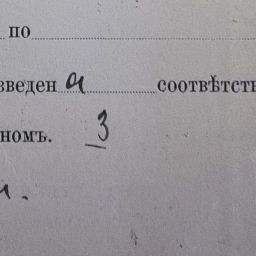 по
зведен а соотвѣтств
номъ. 3